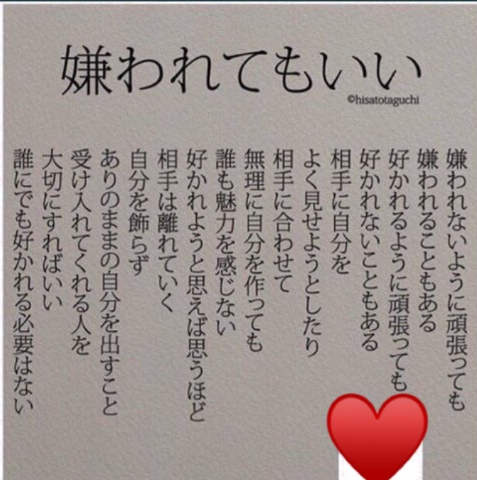 嫌われてもいい
©hisatotaguchi
嫌われないように頑張っても
嫌われることもある
好かれるように頑張っても
好かれないこともある
相手に自分を
よく見せようとしたり
相手に合わせて
無理に自分を作っても
誰も魅力を感じない
好かれようと思えば思うほど
相手は離れていく
自分を飾らず
ありのままの自分を出すこと
受け入れてくれる人を
大切にすればいい
誰にでも好かれる必要はない